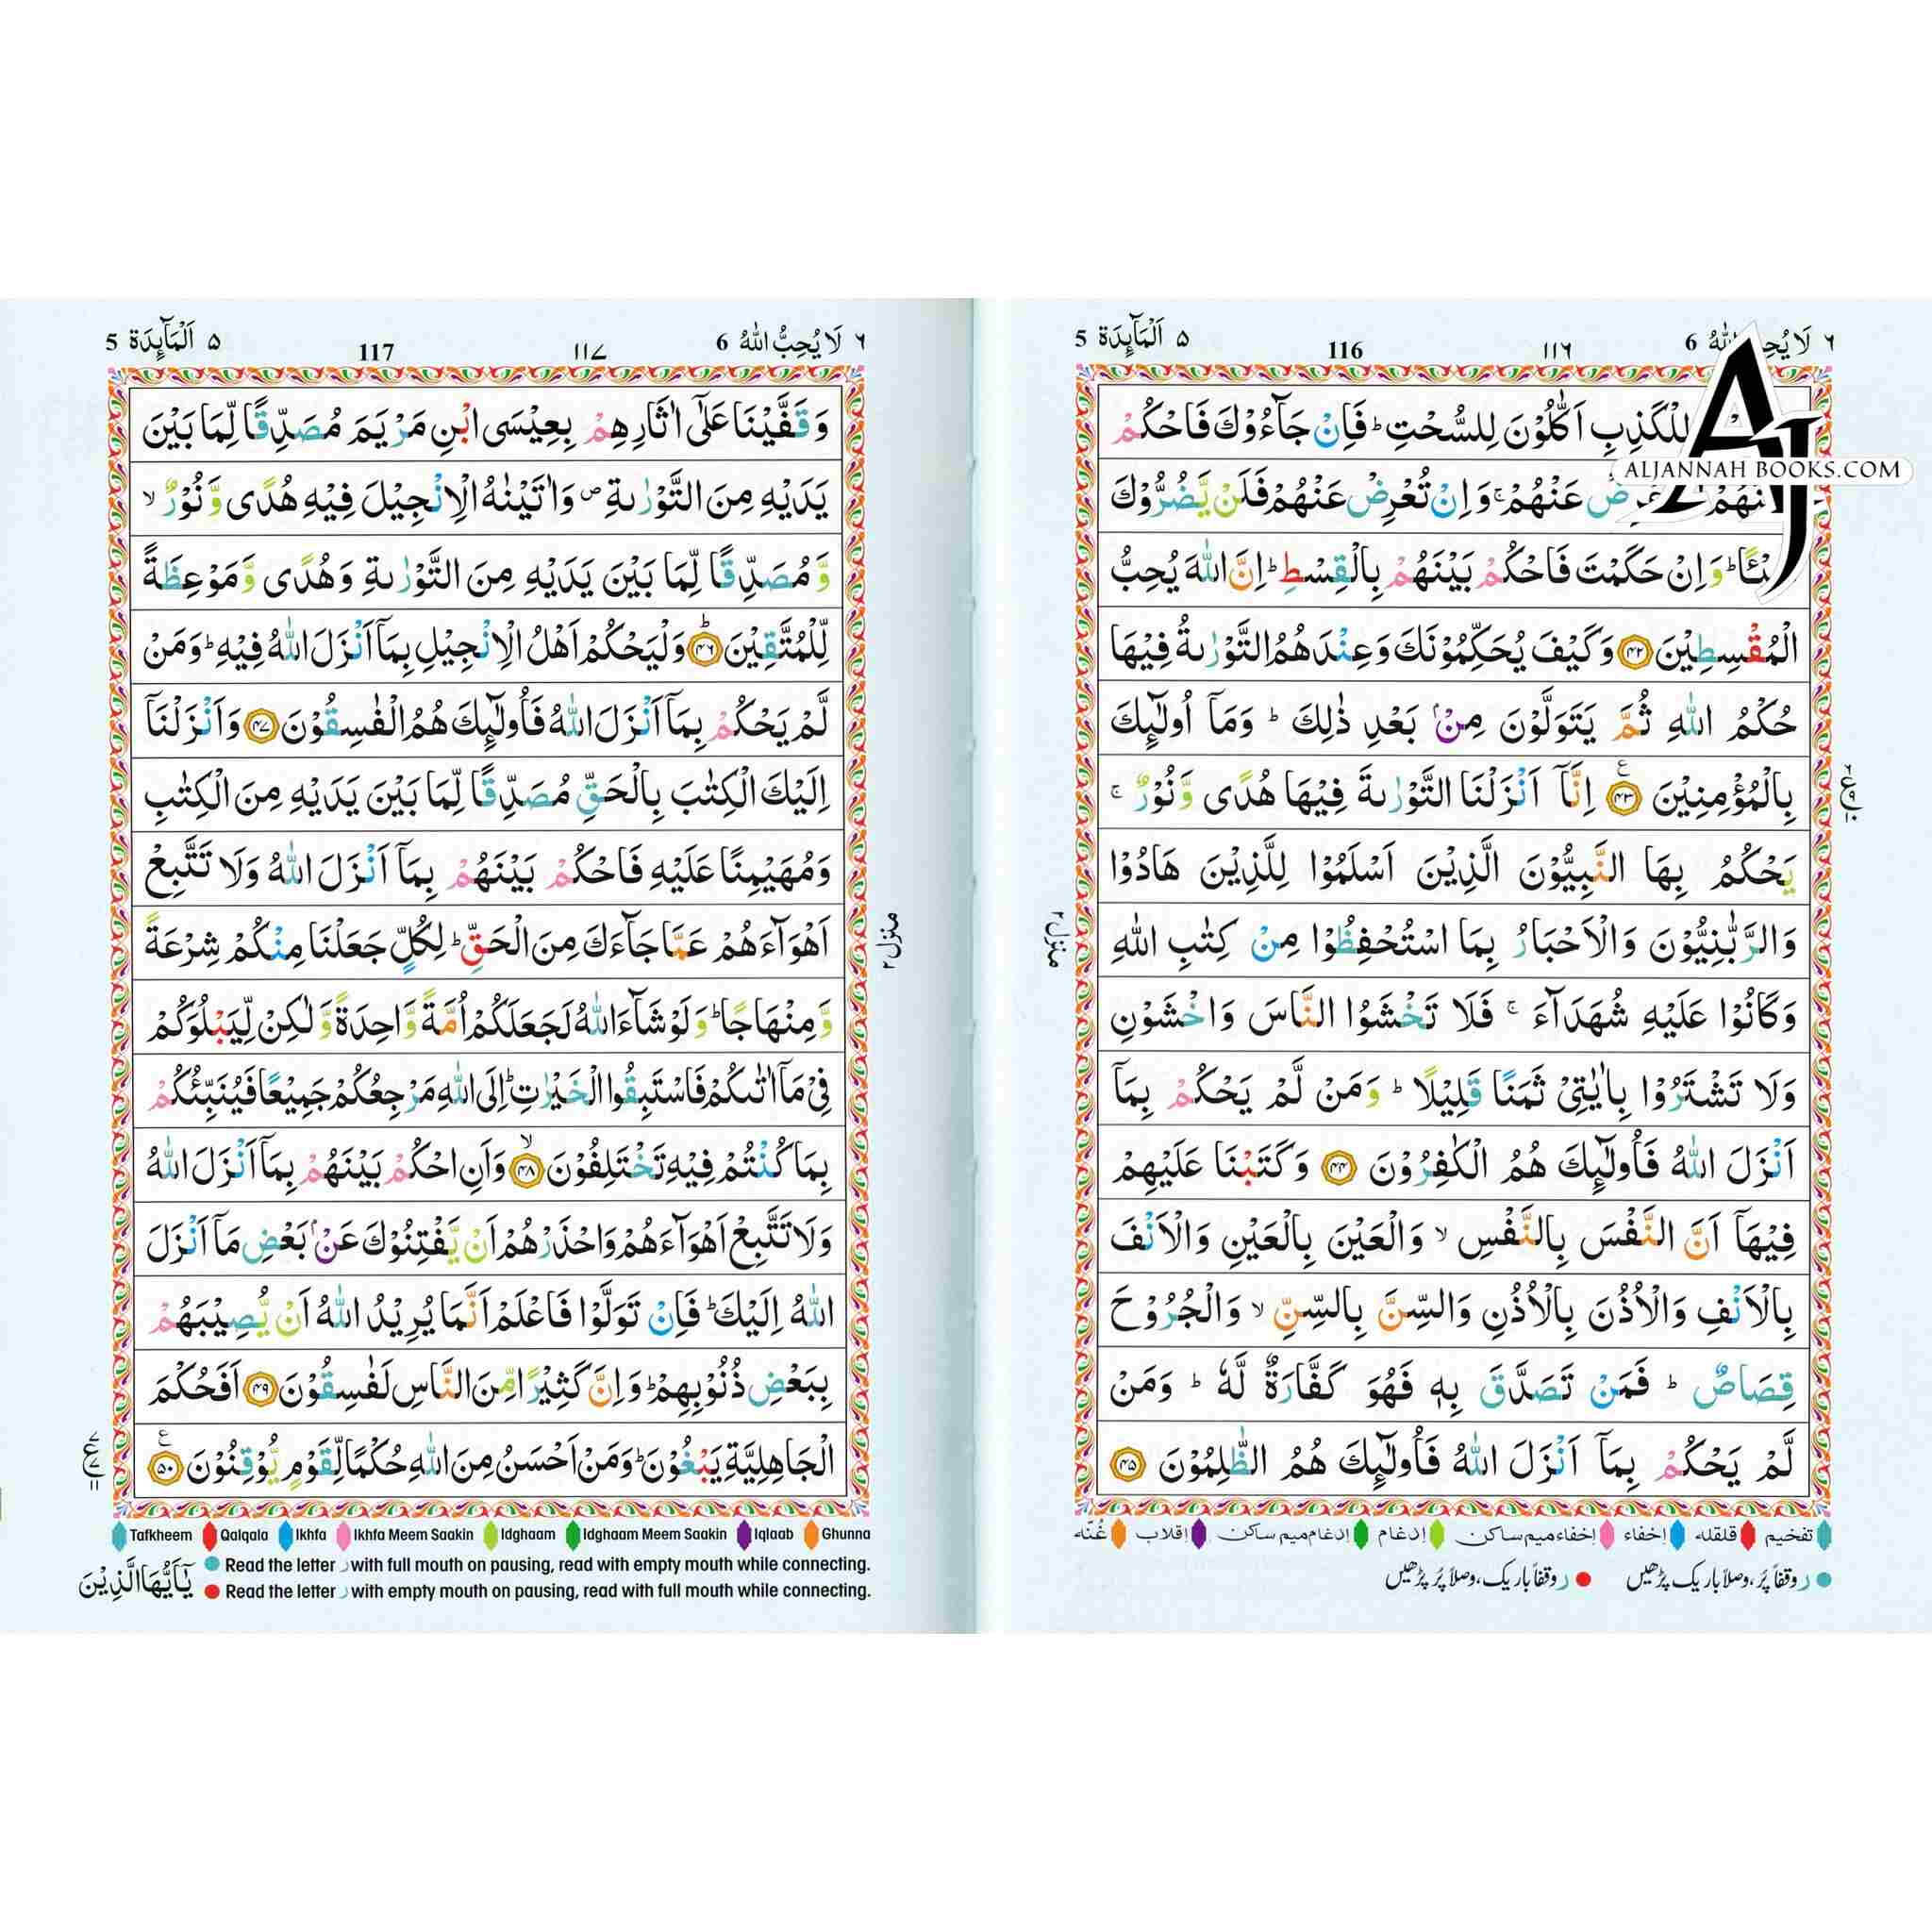 ٦ لَا يُحِبُّ اللهُ 6
١١٦
116
٥ اَلْمَآئِدَة 5
ALJANNAH BOOKS.COM
لِلْكَذِبِ اَكّٰلُوْنَ لِلسُّحْتِ ؕ فَاِنْ جَآءُوْكَ فَاحْكُمْ
عَنْهُمْ ۚ وَاِنْ تُعْرِضْ عَنْهُمْ فَلَنْ يَّضُرُّوْكَ
وَاِنْ حَكَمْتَ فَاحْكُمْ بَيْنَهُمْ بِالْقِسْطِ ؕ اِنَّ اللهَ يُحِبُّ
الْمُقْسِطِيْنَ ﴿۴۲﴾ وَكَيْفَ يُحَكِّمُوْنَكَ وَعِنْدَهُمُ التَّوْرٰىةُ فِيْهَا
حُكْمُ اللهِ ثُمَّ يَتَوَلَّوْنَ مِنْۢ بَعْدِ ذٰلِكَ ؕ وَمَآ اُولٰٓئِكَ
بِالْمُؤْمِنِيْنَ ﴿۴۳﴾ اِنَّآ اَنْزَلْنَا التَّوْرٰىةَ فِيْهَا هُدًى وَّنُوْرٌ ۚ
يَحْكُمُ بِهَا النَّبِيُّوْنَ الَّذِيْنَ اَسْلَمُوْا لِلَّذِيْنَ هَادُوْا
وَالرَّبّٰنِيُّوْنَ وَالْاَحْبَارُ بِمَا اسْتُحْفِظُوْا مِنْ كِتٰبِ اللهِ
وَكَانُوْا عَلَيْهِ شُهَدَآءَ ۚ فَلَا تَخْشَوُا النَّاسَ وَاخْشَوْنِ
وَلَا تَشْتَرُوْا بِاٰيٰتِيْ ثَمَنًا قَلِيْلًا ؕ وَمَنْ لَّمْ يَحْكُمْ بِمَآ
اَنْزَلَ اللهُ فَاُولٰٓئِكَ هُمُ الْكٰفِرُوْنَ ﴿۴۴﴾ وَكَتَبْنَا عَلَيْهِمْ
فِيْهَآ اَنَّ النَّفْسَ بِالنَّفْسِ ۙ وَالْعَيْنَ بِالْعَيْنِ وَالْاَنْفَ
بِالْاَنْفِ وَالْاُذُنَ بِالْاُذُنِ وَالسِّنَّ بِالسِّنِّ ۙ وَالْجُرُوْحَ
قِصَاصٌ ؕ فَمَنْ تَصَدَّقَ بِهٖ فَهُوَ كَفَّارَةٌ لَّهٗ ؕ وَمَنْ
لَّمْ يَحْكُمْ بِمَآ اَنْزَلَ اللهُ فَاُولٰٓئِكَ هُمُ الظّٰلِمُوْنَ ﴿۴۵﴾
منزل ٢
تفخیم قلقله إخفاء إخفاء میم ساکن إدغام إدغام میم ساکن إقلاب غُنّه
ر وقفاً پُر، وصلاً باریک پڑھیں ر وقفاً باریک، وصلاً پُر پڑھیں
٦ لَا يُحِبُّ اللهُ 6
١١٧
117
٥ اَلْمَآئِدَة 5
وَقَفَّيْنَا عَلٰٓى اٰثَارِهِمْ بِعِيْسَى ابْنِ مَرْيَمَ مُصَدِّقًا لِّمَا بَيْنَ
يَدَيْهِ مِنَ التَّوْرٰىةِ ۪ وَاٰتَيْنٰهُ الْاِنْجِيْلَ فِيْهِ هُدًى وَّنُوْرٌ ۙ
وَّمُصَدِّقًا لِّمَا بَيْنَ يَدَيْهِ مِنَ التَّوْرٰىةِ وَهُدًى وَّمَوْعِظَةً
لِّلْمُتَّقِيْنَ ؕ﴿۴۶﴾ وَلْيَحْكُمْ اَهْلُ الْاِنْجِيْلِ بِمَآ اَنْزَلَ اللهُ فِيْهِ ؕ وَمَنْ
لَّمْ يَحْكُمْ بِمَآ اَنْزَلَ اللهُ فَاُولٰٓئِكَ هُمُ الْفٰسِقُوْنَ ﴿۴۷﴾ وَاَنْزَلْنَآ
اِلَيْكَ الْكِتٰبَ بِالْحَقِّ مُصَدِّقًا لِّمَا بَيْنَ يَدَيْهِ مِنَ الْكِتٰبِ
وَمُهَيْمِنًا عَلَيْهِ فَاحْكُمْ بَيْنَهُمْ بِمَآ اَنْزَلَ اللهُ وَلَا تَتَّبِعْ
اَهْوَآءَهُمْ عَمَّا جَآءَكَ مِنَ الْحَقِّ ؕ لِكُلٍّ جَعَلْنَا مِنْكُمْ شِرْعَةً
وَّمِنْهَاجًا ؕ وَلَوْ شَآءَ اللهُ لَجَعَلَكُمْ اُمَّةً وَّاحِدَةً وَّلٰكِنْ لِّيَبْلُوَكُمْ
فِيْ مَآ اٰتٰىكُمْ فَاسْتَبِقُوا الْخَيْرٰتِ ؕ اِلَى اللهِ مَرْجِعُكُمْ جَمِيْعًا فَيُنَبِّئُكُمْ
بِمَا كُنْتُمْ فِيْهِ تَخْتَلِفُوْنَ ۙ﴿۴۸﴾ وَاَنِ احْكُمْ بَيْنَهُمْ بِمَآ اَنْزَلَ اللهُ
وَلَا تَتَّبِعْ اَهْوَآءَهُمْ وَاحْذَرْهُمْ اَنْ يَّفْتِنُوْكَ عَنْۢ بَعْضِ مَآ اَنْزَلَ
اللهُ اِلَيْكَ ؕ فَاِنْ تَوَلَّوْا فَاعْلَمْ اَنَّمَا يُرِيْدُ اللهُ اَنْ يُّصِيْبَهُمْ
بِبَعْضِ ذُنُوْبِهِمْ ؕ وَاِنَّ كَثِيْرًا مِّنَ النَّاسِ لَفٰسِقُوْنَ ﴿۴۹﴾ اَفَحُكْمَ
الْجَاهِلِيَّةِ يَبْغُوْنَ ؕ وَمَنْ اَحْسَنُ مِنَ اللهِ حُكْمًا لِّقَوْمٍ يُّوْقِنُوْنَ ﴿۵۰﴾
منزل ٢
Tafkheem Qalqala Ikhfa Ikhfa Meem Saakin Idghaam Idghaam Meem Saakin Iqlaab Ghunna
Read the letter ر with full mouth on pausing, read with empty mouth while connecting.
Read the letter ر with empty mouth on pausing, read with full mouth while connecting.
يٰٓاَيُّهَا الَّذِيْنَ